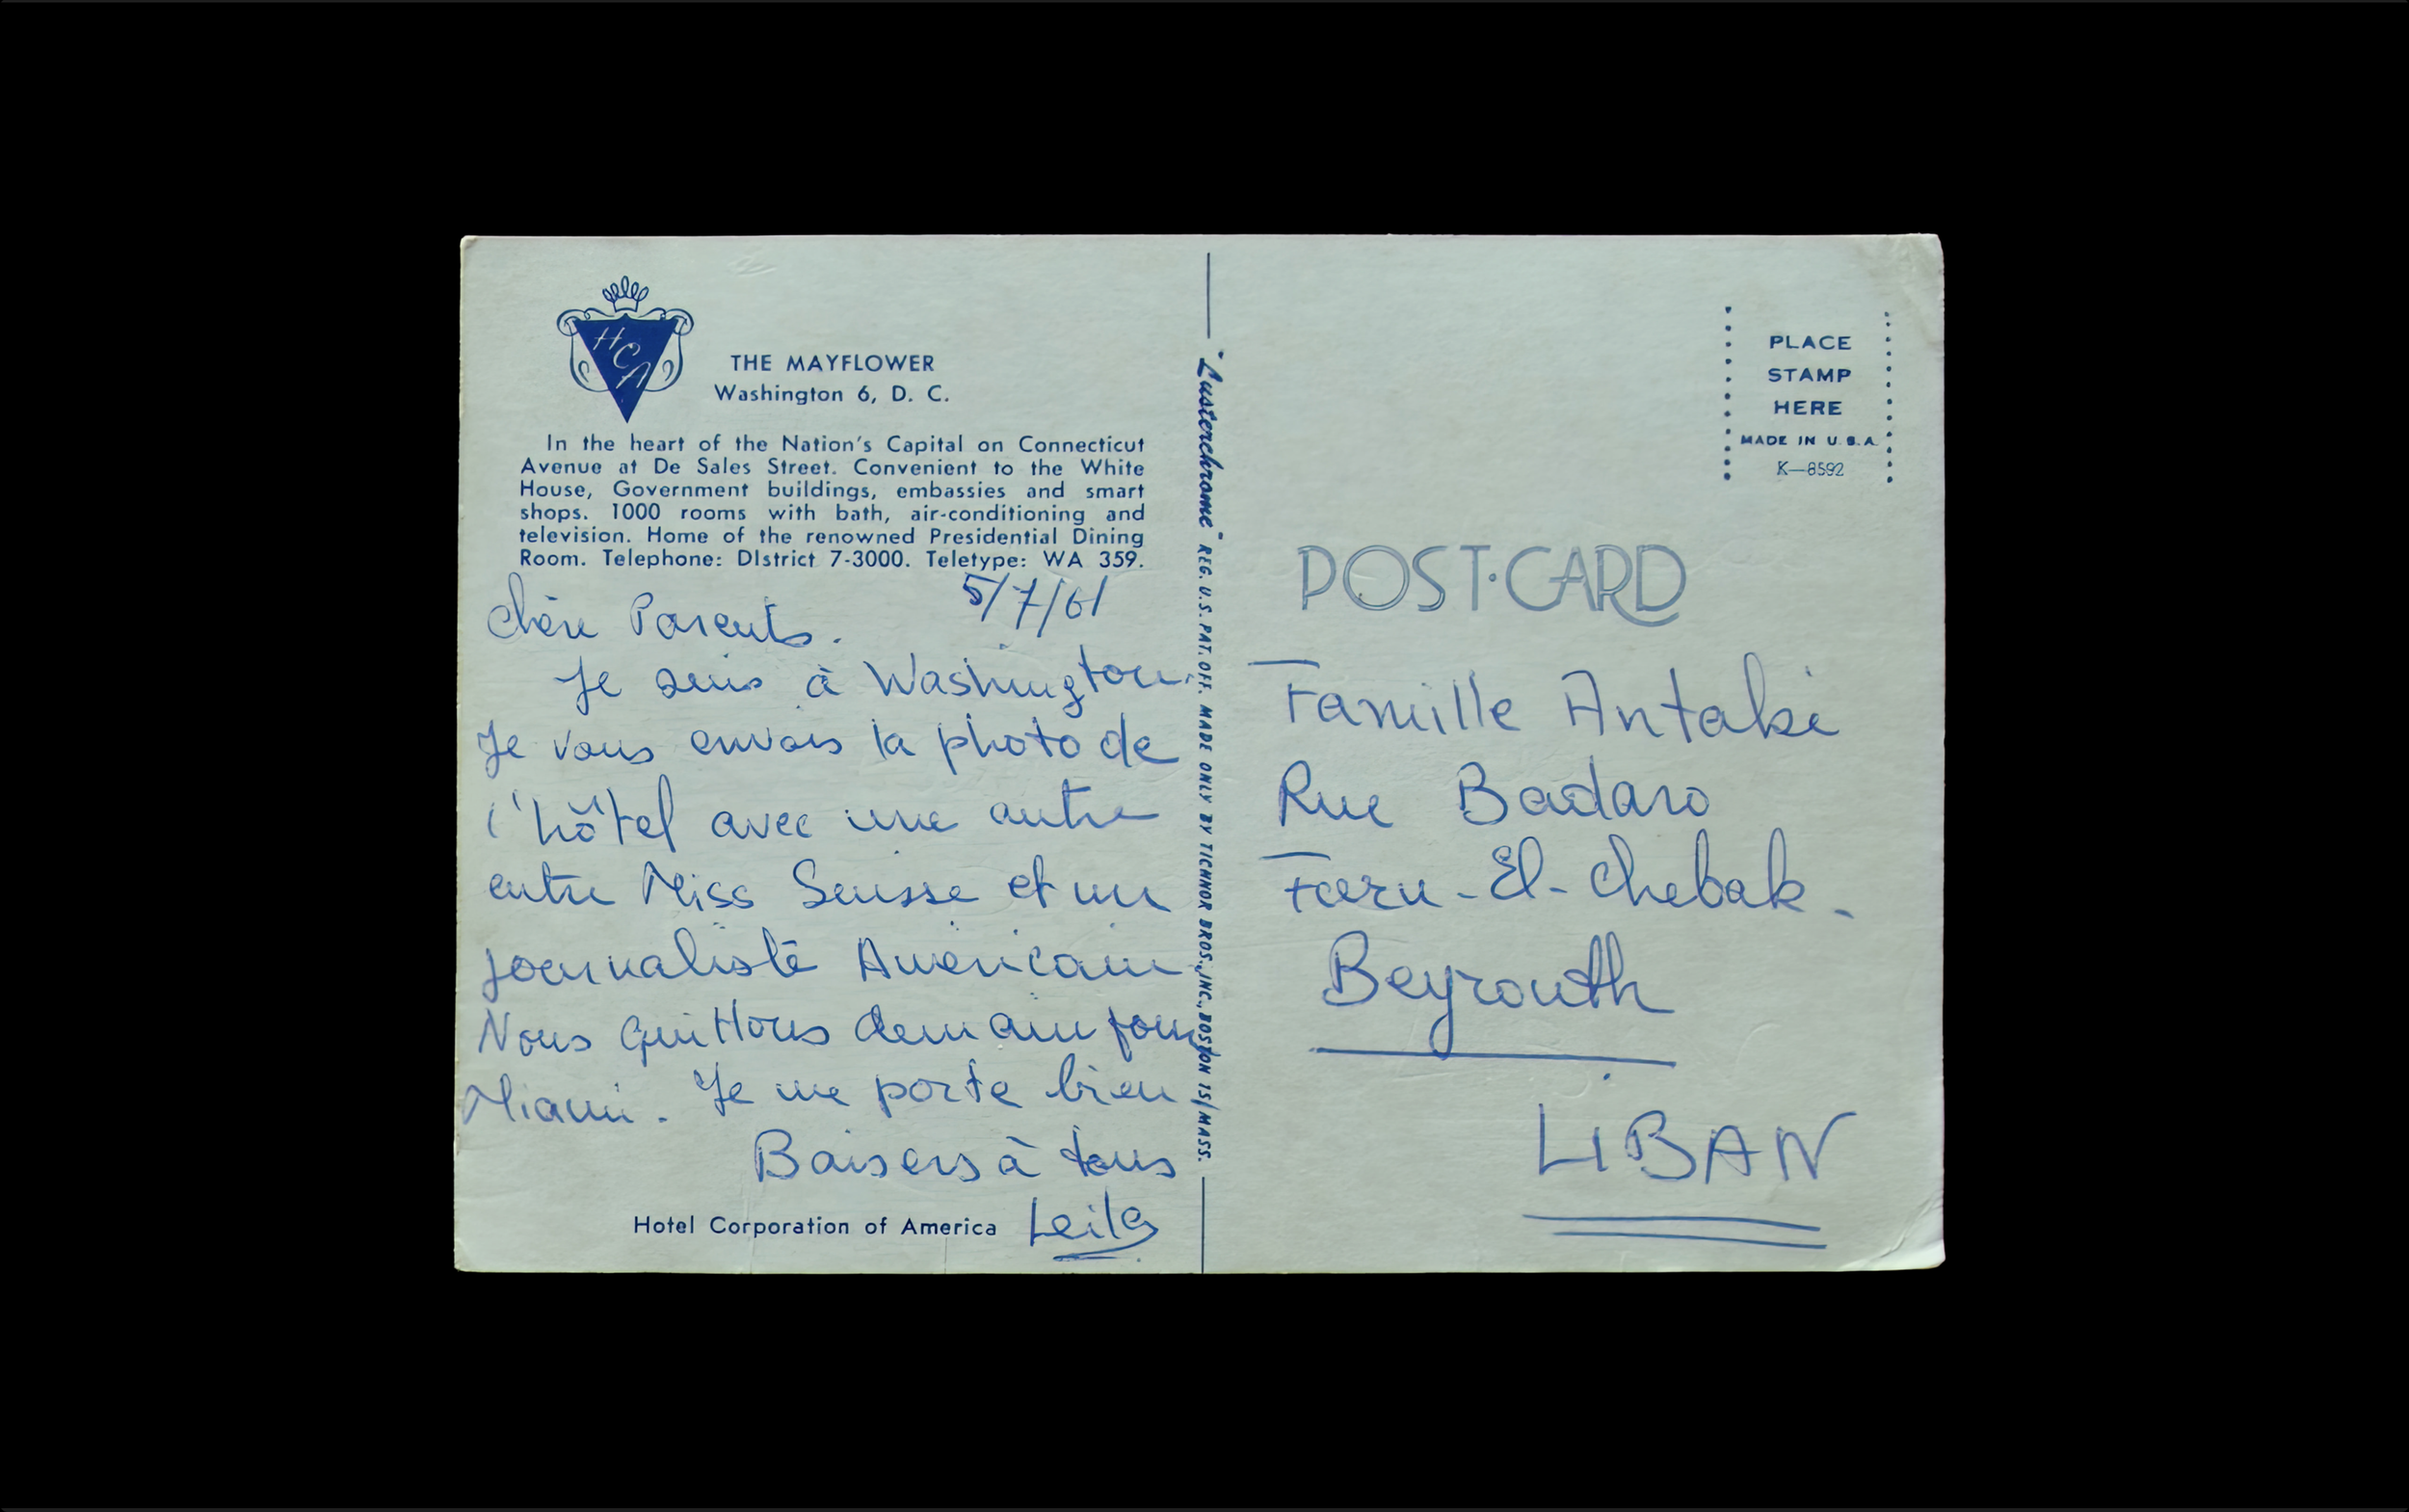 HCA
THE MAYFLOWER
Washington 6, D. C.
In the heart of the Nation's Capital on Connecticut
Avenue at De Sales Street. Convenient to the White
House, Government buildings, embassies and smart
shops. 1000 rooms with bath, air-conditioning and
television. Home of the renowned Presidential Dining
Room. Telephone: DIstrict 7-3000. Teletype: WA 359.
5/7/61
Chère Parents.
Je suis à Washington.
Je vous envois la photo de
l'hôtel avec une autre
entre Miss Suisse et un
journaliste Américain
Nous quittons demain pour
Miami. Je me porte bien
Baisers à tous
Leila
Hotel Corporation of America
"Lusterchrome" REG. U.S. PAT. OFF. MADE ONLY BY TICHNOR BROS., INC., BOSTON 15, MASS.
PLACE
STAMP
HERE
MADE IN U.S.A.
K-8592
POST·CARD
Famille Antaki
Rue Badaro
Furn-El-Chebak.
Beyrouth
LIBAN